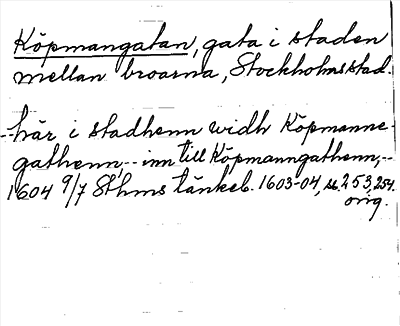 Köpmangatan, gata i staden
mellan broarna, Stockholms stad.
-- här i stadhenn widh Köpmanne-
gathenn, -- inn till Köpmanngathenn, --
1604 9/7 Sthms tänkeb. 1603-04, ss. 253, 254.
orig.